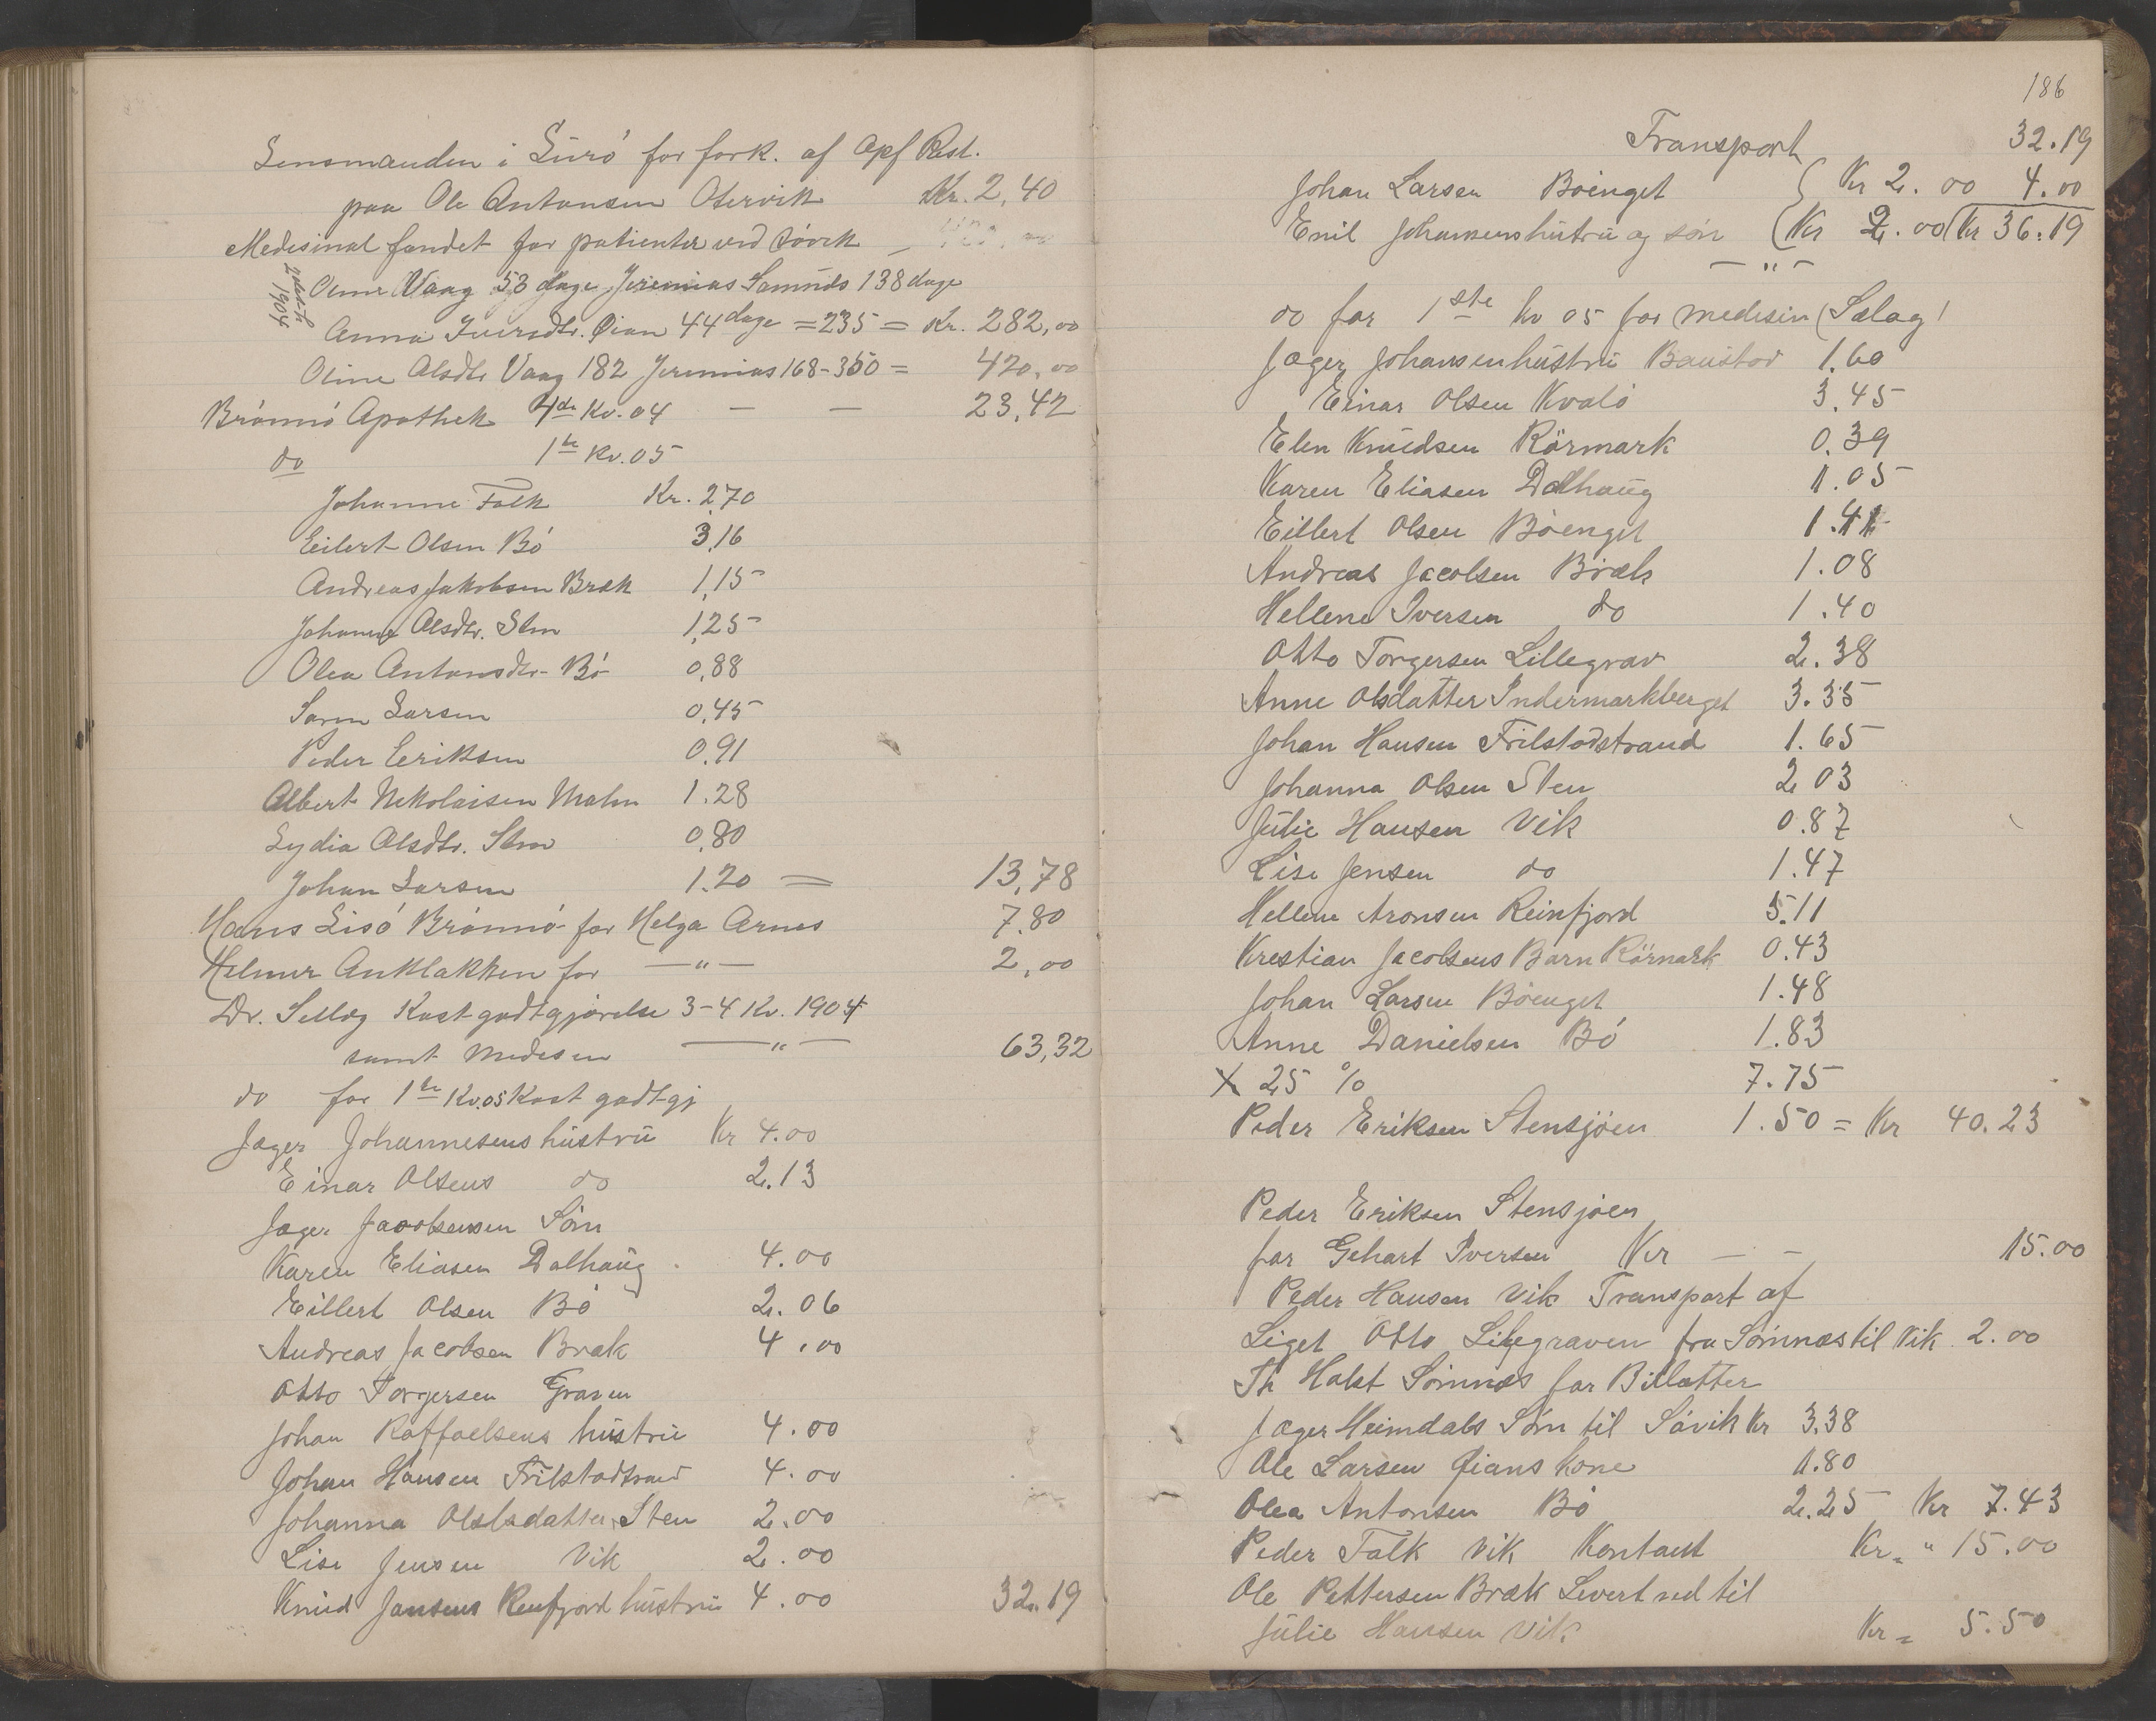 Lensmanden i Lurö for fork. af Opf Rest.
paa Ole Antonsen Otervik Kr. 2,40
Medesinal fondet for patienter ved Sövik
2det h 1904
Oline Vaag 53 dage, Jeremias Samuds 138 dage
Anna Iversdtr. Öian 44 dage = 235 = Kr. 282,00
Oline Olsdtr Vaag 182 Jeremias 168 - 350 = 420,00
Brönnö Apothek 4de Kv. 04 — — 23,42
do 1te Kv. 05
Johanne Falk Kr. 2,70
Eilert Olsen Bö 3,16
Andreas Jakobsen Bræk 1,15
Johanna Olsdtr. Sten 1,25
Olea Antonsdtr. Bö 0,88
Søren Larsen 0,45
Peder Eeriksen 0,91
Albert Nekolaisen Malm 1.28
Lydia Olsdtr. Sten 0,80
Johan Larsen 1.20 = 13,78
Hans Lisö Brönnö for Helga Arnes 7.80
Helmer Anklakken for —"— 2,00
Dr. Selög Kost godtgjörelse 3-4 Kv. 1904
samt Medesen —"— 63,32
do for 1te Kv. 05 Kost godtgj
Jæger Johannesens hustru Kr 4.00
Einar Olsens do 2.13
Jæger Jacobsensen Sön
Karen Eliasen Dalhaug 4.00
Eillert Olsen Bö 2.06
Andreas Jacobsen Bræk 4.00
Otto Torgersen Graven
Johan Raffaelsens hustru 4.00
Johan Hansen Frilstadstrand 4.00
Johanna Olsdatter Sten 2.00
Lise Jensen Vik 2.00
Knud Jansens Reinfjord hustru 4.00 32.19
186
Transport 32.19
Johan Larsen Böenget Kr 2.00 4.00
Emil Johansens hustru og sön Kr 2.00 Kr 36.19
—"—
do for 1ste kv 05 for medesin (Sælag)
Jæger Johansen hustru Baustad 1.60
Einar Olsen Kvalö 3.45
Elen Knudsen Rörmark 0.39
Karen Eliasen Dalhaug 1.05
Eillert Olsen Böenget 1.41
Andreas Jacobsen Bræk 1.08
Hellene Iversen do 1.40
Otto Torgersen Lillegrav 2.38
Anne Olsdatter Indermarkberget 3.35
Johan Hansen Frilstadstrand 1.65
Johanna Olsen Sten 2 03
Julie Hansen Vik 0.87
Lise Jensen do 1.47
Hellene Aronsen Reinfjord 5.11
Krestian Jacobsens Barn Rörmark 0.43
Johan Larsen Böenget 1.48
Anne Danielsen Bö 1.83
X 25 % 7.75
Peder Eriksen Stensjöen 1.50 = Kr 40.23
Peder Eriksen Stensjöen
for Gehart Iversen Kr — — 15.00
Peder Hansen Vik Transport af
Liget Otto Lillegraven fra Sömnæs til Vik 2.00
Th Holst Sömnæs for Billætter
Jæger Heimdals Sön til Sövik Kr 3.38
Ole Larsen Öians kone 1.80
Olea Antonsen Bö 2.25 Kr 7.43
Peder Falk Vik Kontant Kr = " 15.00
Ole Pettersen Bræk Levert ved til
Julie Hansen Vik. Kr = 5.50